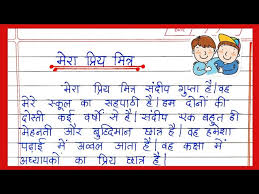 मेरा प्रिय मित्र
मेरा प्रिय मित्र संदीप गुप्ता है। वह
मेरे स्कूल का सहपाठी है। हम दोनों की
दोस्ती कई वर्षों से है। संदीप एक बहुत ही
मेहनती और बुध्दिमान छात्र है। वह हमेशा
पढ़ाई में अव्वल आता है। वह कक्षा में
अध्यापकों का प्रिय छात्र है।